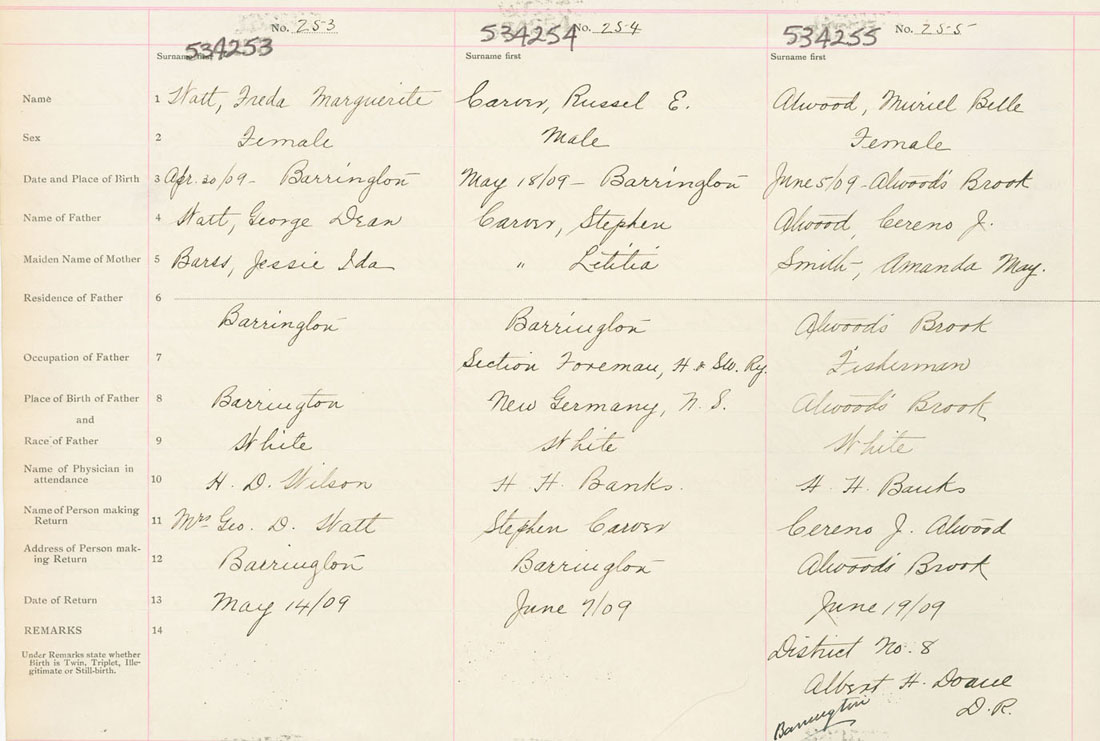 No. 253
534253
Surname first
No. 254
534254
Surname first
No. 255
534255
Surname first
Name 1 Watt, Freda Marguerite Carver, Russel E. Atwood, Muriel Belle
Sex 2 Female Male Female
Date and Place of Birth 3 Apr. 30/09 - Barrington May 18/09 - Barrington June 5/09 - Atwood's Brook
Name of Father 4 Watt, George Dean Carver, Stephen Atwood, Cereno J.
Maiden Name of Mother 5 Barss, Jessie Ida " Letitia Smith, Amanda May.
Residence of Father 6
Barrington Barrington Atwood's Brook
Occupation of Father 7 Section Foreman, H & S.W. Ry. Fisherman
Place of Birth of Father 8 Barrington New Germany, N. S. Atwood's Brook
and
Race of Father 9 White White White
Name of Physician in
attendance 10 H. D. Wilson H. H. Banks. H. H. Banks
Name of Person making
Return 11 Mrs Geo. D. Watt Stephen Carver Cereno J. Atwood
Address of Person mak-
ing Return 12 Barrington Barrington Atwood's Brook
Date of Return 13 May 14/09 June 7/09 June 19/09
REMARKS 14
Under Remarks state whether
Birth is Twin, Triplet, Ille-
gitimate or Still-birth.
District No. 8
Albert H. Doane
D. R.
Barrington